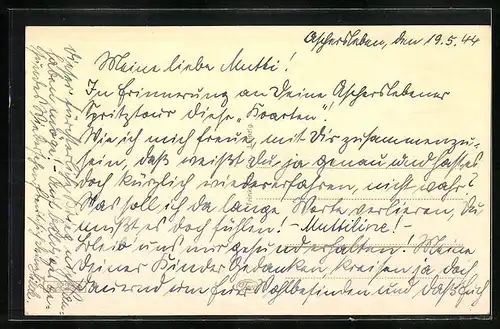 Aschersleben, den 19.5.44
Meine liebe Mutti!
In Erinnerung an Deine Ascherslebener
Spritztour diese „Kaarten".
Wie ich mich freue, mit Dir zusammenzu-
sein, daß weißt Du ja genau und hast es
doch kürzlich wiedererfahren, nicht wahr?
Was soll ich da lange Worte verlieren, Du
mußt es doch fühlen! – Muttiline! –
Bleib' uns nur gesund erhalten! Meine
Deiner Kinder Gedanken, kreisen ja doch
dauernd um Euer Wohlbefinden und daß sich
dieser fürchterliche Krieg
haben möge! –